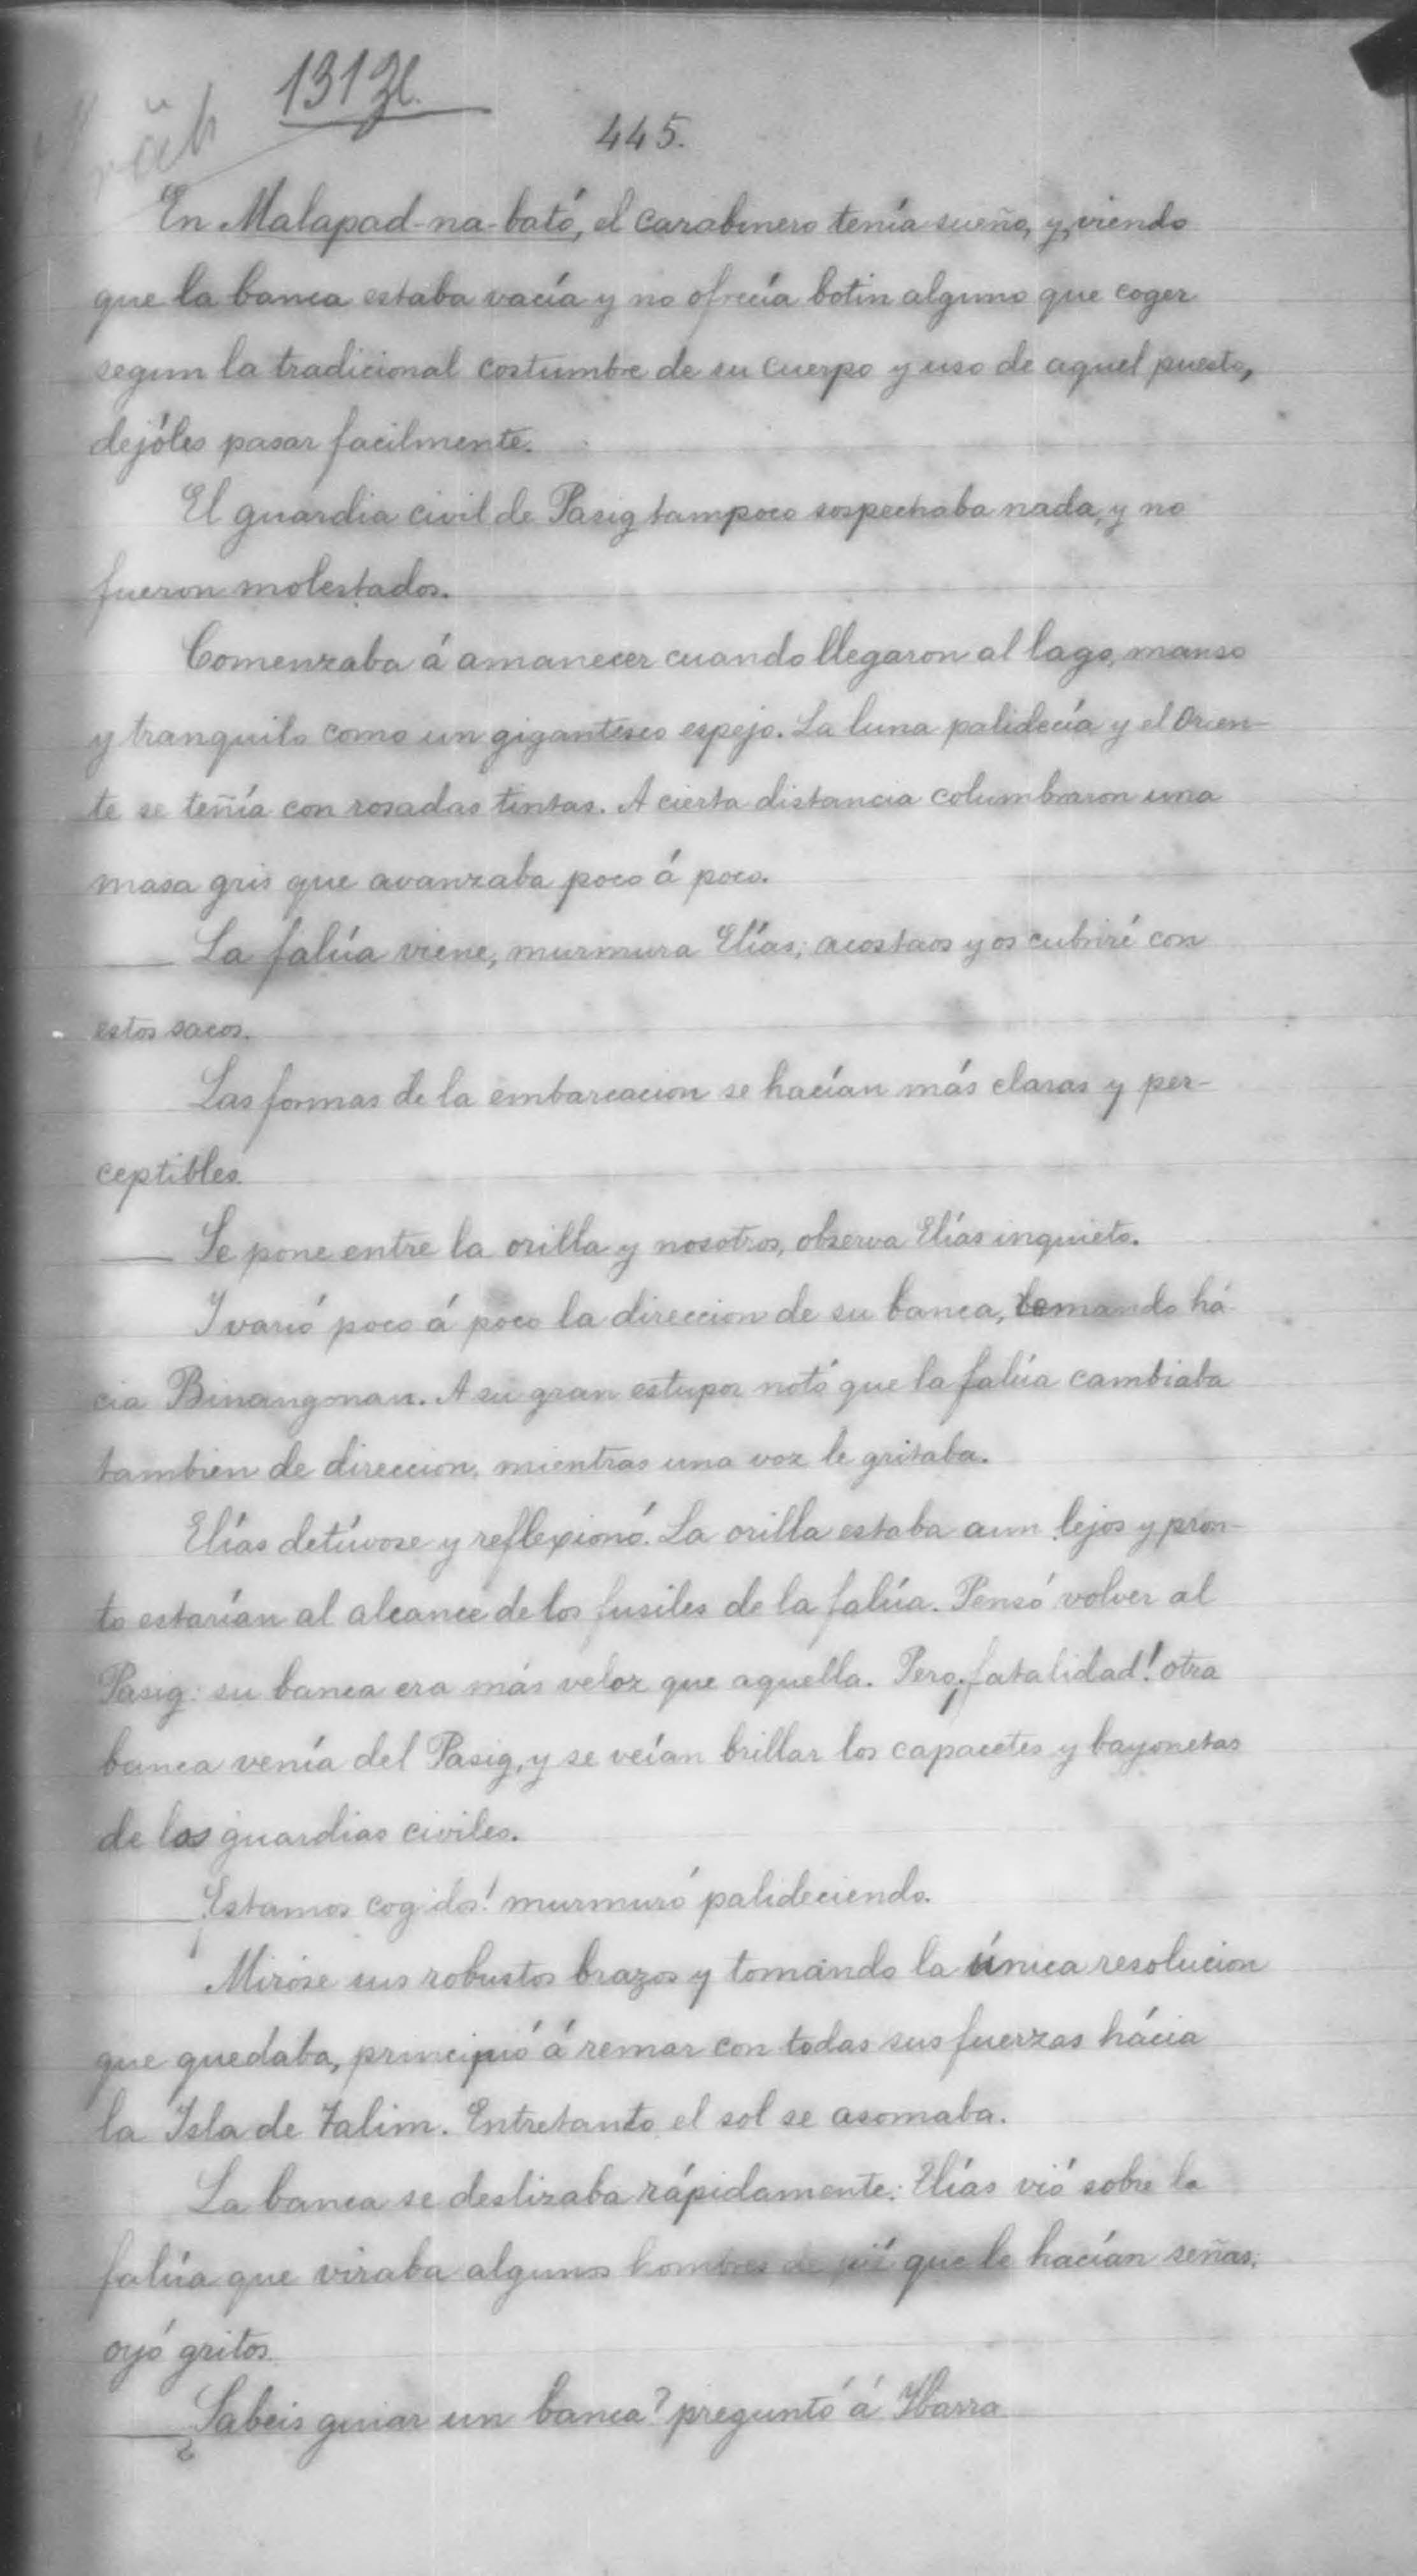 445.
En Malapad-na-bató, el carabinero tenía sueño, y, viendo
que la banca estaba vacía y no ofrecía botin alguno que coger
segun la tradicional costumbre de su cuerpo y uso de aquel puesto,
dejóles pasar facilmente.
El guardia civil de Pasig tampoco sospechaba nada, y no
fueron molestados.
Comenzaba á amanecer cuando llegaron al lago, manso
y tranquilo como un gigantesco espejo. La luna palidecía y el Orien-
te se teñía con rosadas tintas. A cierta distancia columbraron una
masa gris que avanzaba poco á poco.
— La falúa viene, murmura Elías; acostaos y os cubriré con
estos sacos.
Las formas de la embarcacion se hacían más claras y per-
ceptibles.
— Se pone entre la orilla y nosotros, observa Elías inquieto.
I varió poco á poco la direccion de su banca, remando há-
cia Binangonan. A su gran estupor notó que la falúa cambiaba
tambien de direccion, mientras una voz le gritaba.
Elías detúvose y reflexionó. La orilla estaba aun lejos y pron-
to estarían al alcance de los fusiles de la falúa. Pensó volver al
Pasig: su banca era más veloz que aquella. Pero ¡fatalidad! otra
banca venía del Pasig, y se veían brillar los capacetes y bayonetas
de los guardias civiles.
— ¡Estamos cogidos! murmuró palideciendo.
Miróse sus robustos brazos y tomando la única resolucion
que quedaba, principió á remar con todas sus fuerzas hácia
la Isla de Talim. Entretanto el sol se asomaba.
La banca se deslizaba rápidamente: Elías vió sobre la
falúa que viraba algunos hombres de pié que le hacían señas;
oyó gritos.
— ¿Sabeis guiar un banca? preguntó á Ibarra